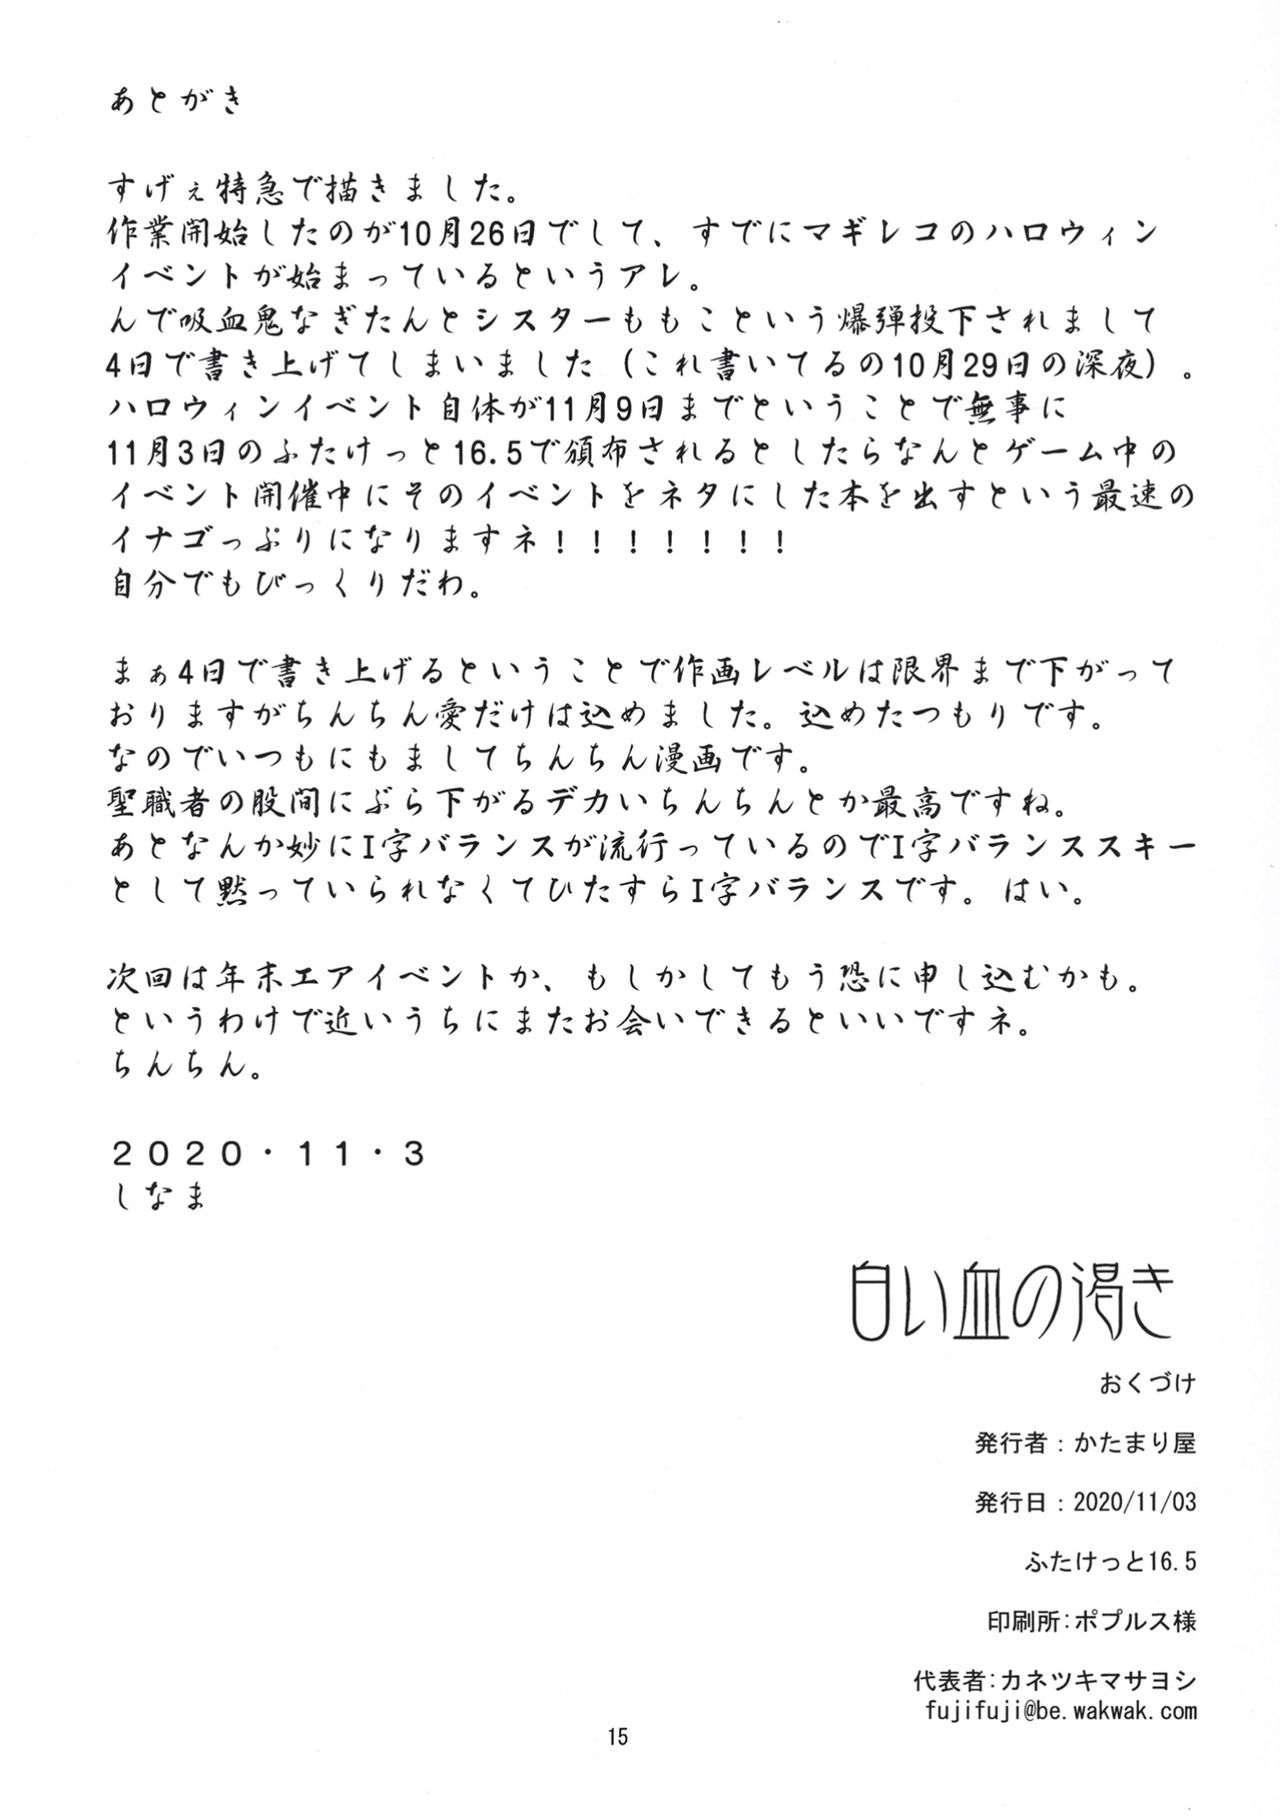 あとがき
すげぇ特急で描きました。
作業開始したのが10月26日でして、すでにマギレコのハロウィン
イベントが始まっているというアレ。
んで吸血鬼なぎたんとシスターももこという爆弾投下されまして
4日で書き上げてしまいました（これ書いてるの10月29日の深夜）。
ハロウィンイベント自体が11月9日までということで無事に
11月3日のふたけっと16.5で頒布されるとしたらなんとゲーム中の
イベント開催中にそのイベントをネタにした本を出すという最速の
イナゴっぷりになりますネ！！！！！！！
自分でもびっくりだわ。
まぁ4日で書き上げるということで作画レベルは限界まで下がって
おりますがちんちん愛だけは込めました。込めたつもりです。
なのでいつもにもましてちんちん漫画です。
聖職者の股間にぶら下がるデカいちんちんとか最高ですね。
あとなんか妙にI字バランスが流行っているのでI字バランススキー
として黙っていられなくてひたすらI字バランスです。はい。
次回は年末エアイベントか、もしかしてもう恐に申し込むかも。
というわけで近いうちにまたお会いできるといいですネ。
ちんちん。
２０２０・１１・３
しなま
白い血の渇き
おくづけ
発行者：かたまり屋
発行日：2020/11/03
ふたけっと16.5
印刷所：ポプルス様
代表者：カネツキマサヨシ
fujifuji@be.wakwak.com
15